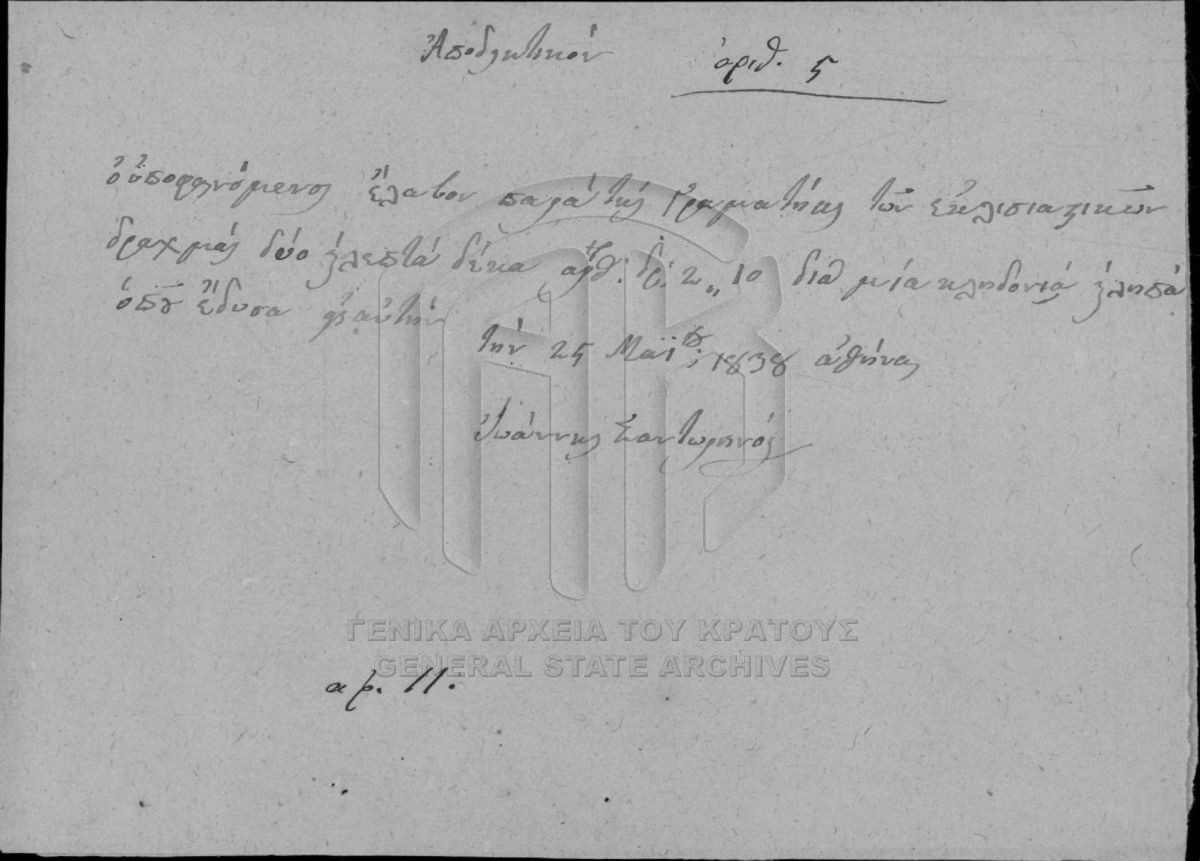 Ἀποδικτικόν ἀριθ. 5
ὁ ὑποφενόμενος ἔλαβον παρὰ τῆς Γραματίας τῶν ἐκλισιαστικῶν
δραχμάς δύο λεπτά δέκα ἀριθ: δρ. 2 ,, 10 διὰ μία κληδονιά
ὁποῦ ἔδυσα
τὴν 25 Μαΐου 1838 ἀθήνας
Ἰωάννης Σαντωρινός
ΓΕΝΙΚΑ ΑΡΧΕΙΑ ΤΟΥ ΚΡΑΤΟΥΣ
GENERAL STATE ARCHIVES
αρ. 11.